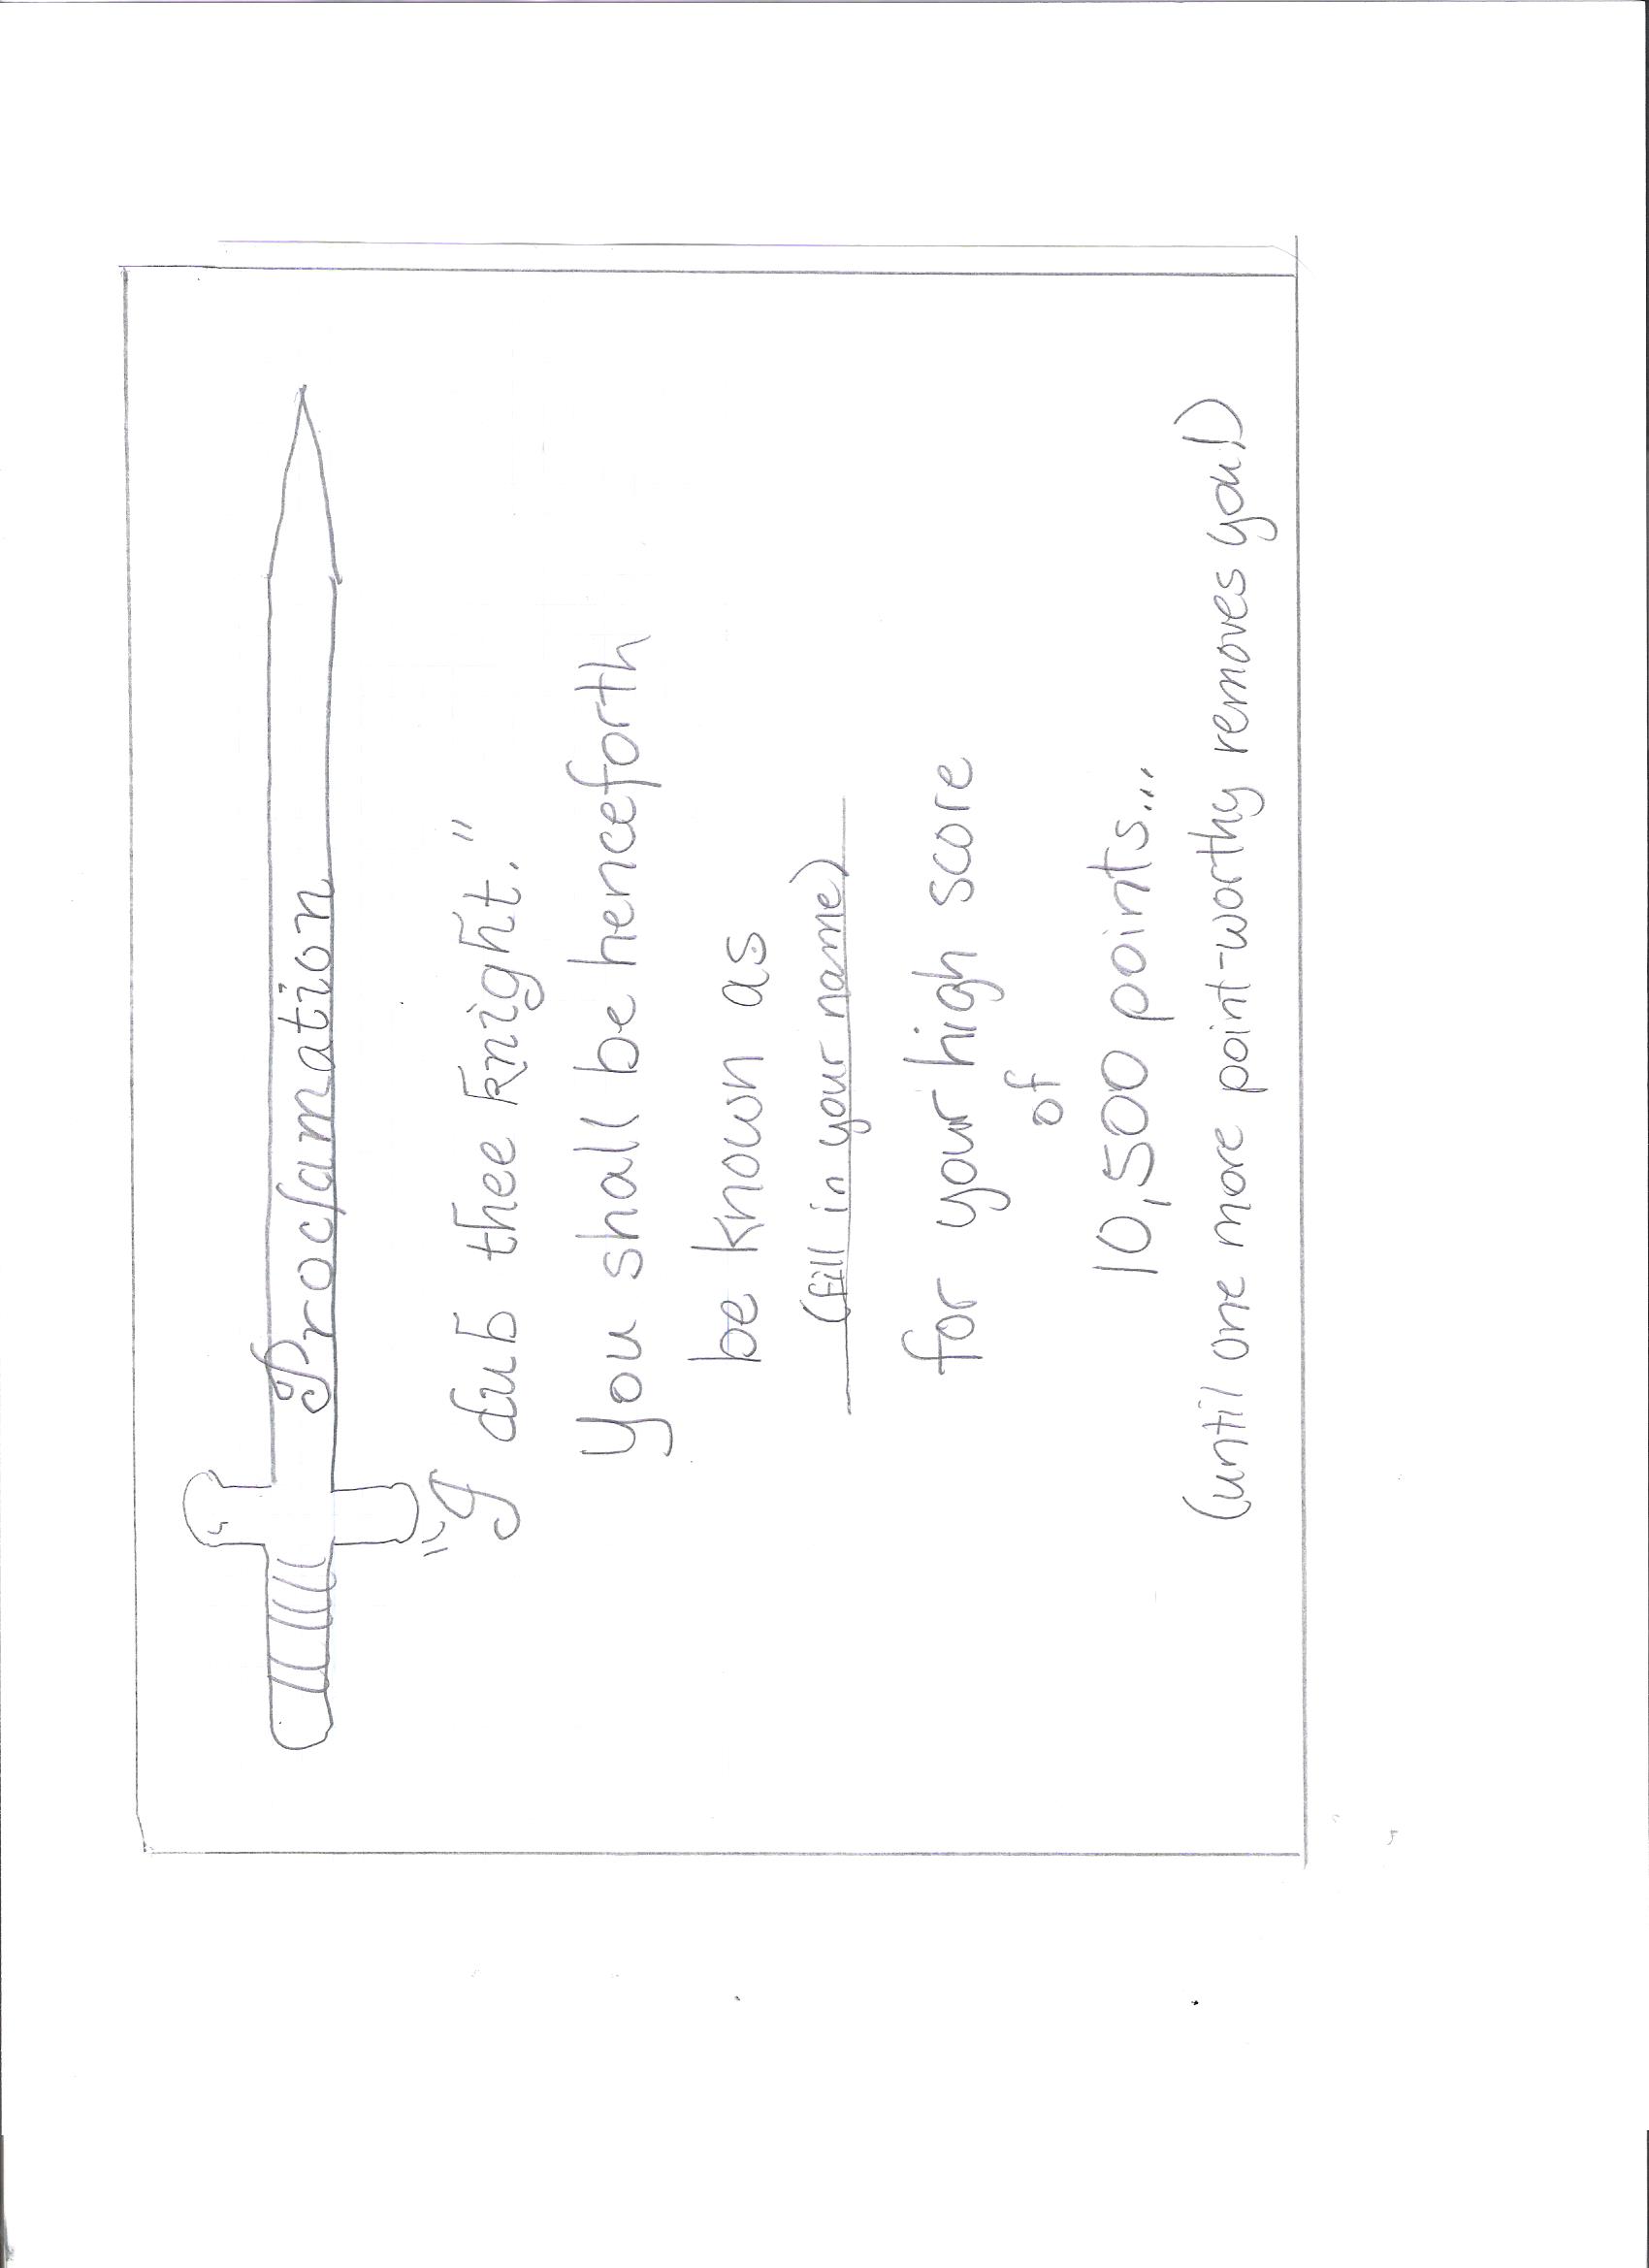 Proclamation
"I dub thee knight."
You shall be henceforth
be known as
(fill in your name)
for your high score
of
10,500 points...
(until one more point-worthy removes you!)